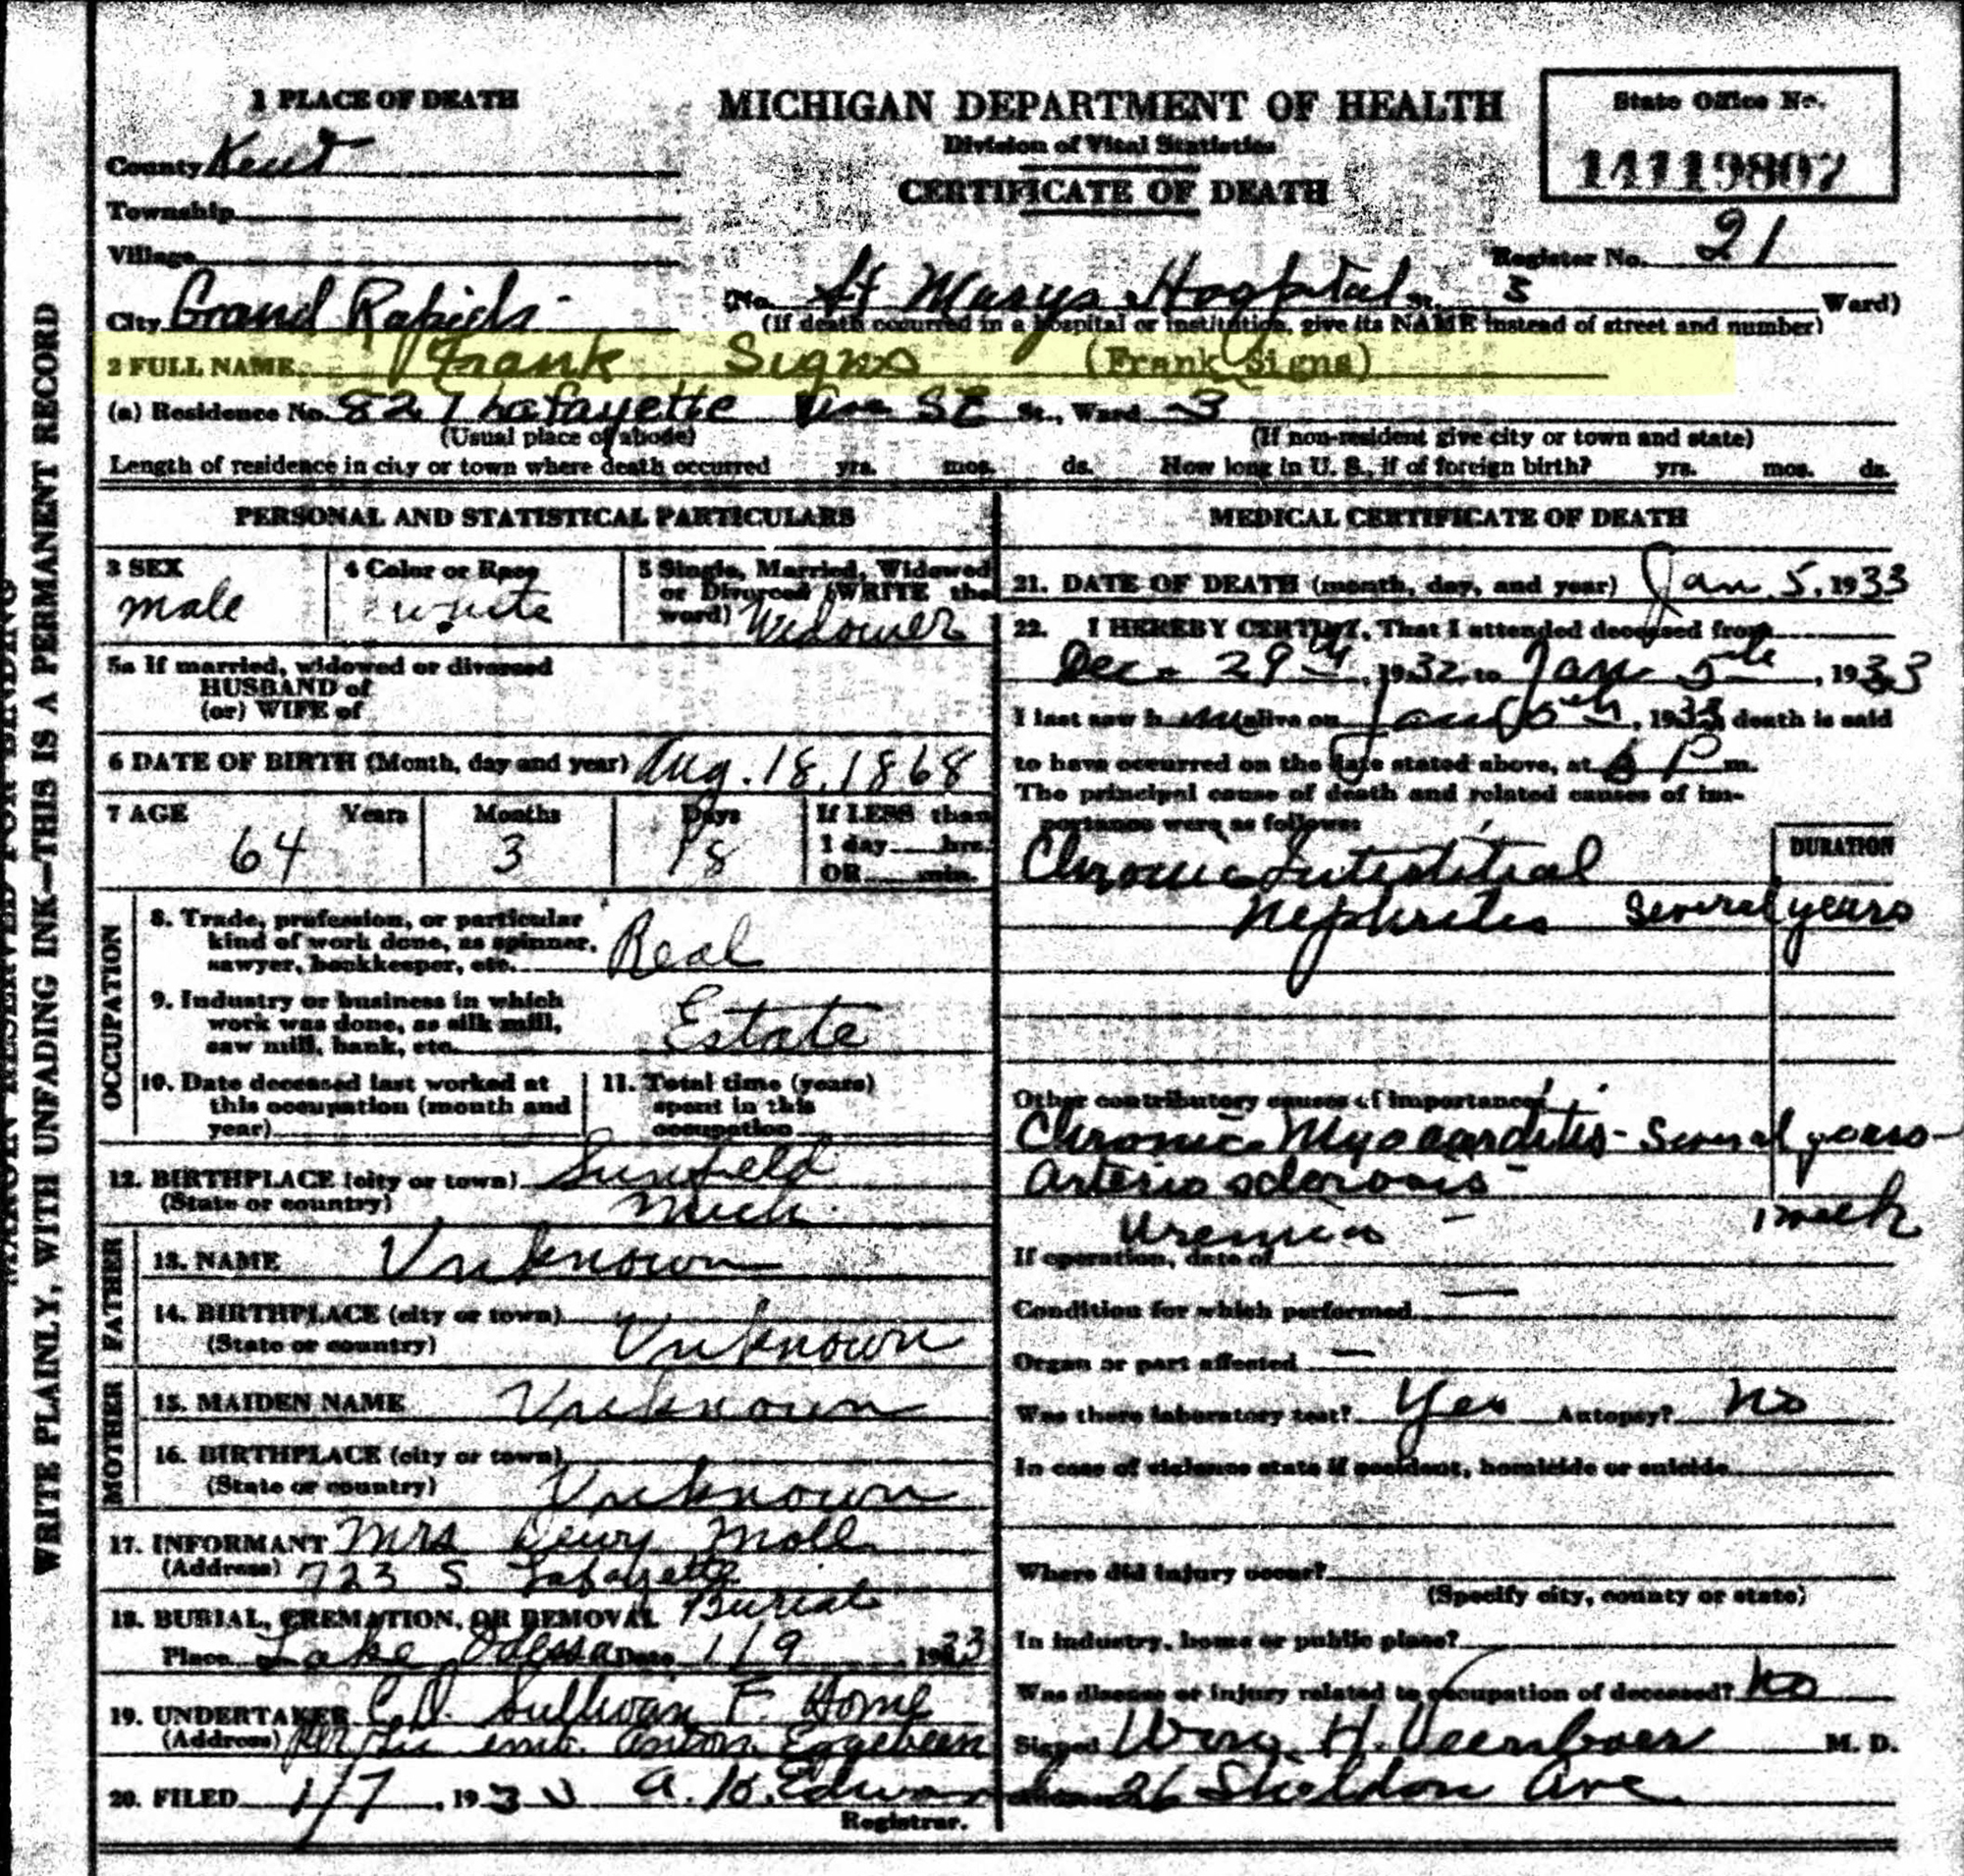 1 PLACE OF DEATH
MICHIGAN DEPARTMENT OF HEALTH
Division of Vital Statistics
CERTIFICATE OF DEATH
State Office No.
14119807
County Kent
Township
Village
Register No. 21
City Grand Rapids
(No. St Marys Hospital St. 3 Ward)
(If death occurred in a hospital or institution, give its NAME instead of street and number)
2 FULL NAME Frank Signs (Frank Signs)
(a) Residence No. 827 Lafayette Ave SE St., Ward 3
(Usual place of abode) (If non-resident give city or town and state)
Length of residence in city or town where death occurred yrs. mos. ds. How long in U. S., if of foreign birth? yrs. mos. ds.
PERSONAL AND STATISTICAL PARTICULARS
3 SEX
male
4 Color or Race
white
5 Single, Married, Widowed
or Divorced (WRITE the
word) Widower
5a If married, widowed or divorced
HUSBAND of
(or) WIFE of
6 DATE OF BIRTH (Month, day and year) Aug. 18, 1868
7 AGE Years Months Days If LESS than
1 day hrs.
OR min.
64 3 18
OCCUPATION
8. Trade, profession, or particular
kind of work done, as spinner,
sawyer, bookkeeper, etc. Real
9. Industry or business in which
work was done, as silk mill,
saw mill, bank, etc. Estate
10. Date deceased last worked at
this occupation (month and
year)
11. Total time (years)
spent in this
occupation
12. BIRTHPLACE (city or town) Sunfield
(State or country) Mich.
FATHER
13. NAME Unknown
14. BIRTHPLACE (city or town)
(State or country) Unknown
MOTHER
15. MAIDEN NAME Unknown
16. BIRTHPLACE (city or town)
(State or country) Unknown
17. INFORMANT Mrs Dewy Moll
(Address) 723 S. Lafayette
18. BURIAL, CREMATION, OR REMOVAL Burial
Place Lake Odessa Date 1/9 1933
19. UNDERTAKER Sullivan F. Home
(Address) Eggebeen
20. FILED 1/7, 193 A. B.
Registrar.
MEDICAL CERTIFICATE OF DEATH
21. DATE OF DEATH (month, day, and year) Jan. 5, 1933
22. I HEREBY CERTIFY, That I attended deceased from
Dec. 29th, 1932, to Jan 5th, 1933
I last saw him alive on Jan 5th, 1933 death is said
to have occurred on the date stated above, at 6 P m.
The principal cause of death and related causes of im-
portance were as follows:
DURATION
Chronic Interstitial
Nephritis Several years
Other contributory causes of importance:
Chronic Myocarditis - Several years -
Arterio sclerosis -
Uremia - 1 week
If operation, date of
Condition for which performed —
Organ or part affected —
Was there laboratory test? Yes Autopsy? No
In case of violence state if accident, homicide or suicide
Where did injury occur?
(Specify city, county or state)
In industry, home or public place?
Was disease or injury related to occupation of deceased? No
Signed H. Veenboer M. D.
26 Sheldon Ave.
WRITE PLAINLY, WITH UNFADING INK—THIS IS A PERMANENT RECORD
MARGIN RESERVED FOR BINDING